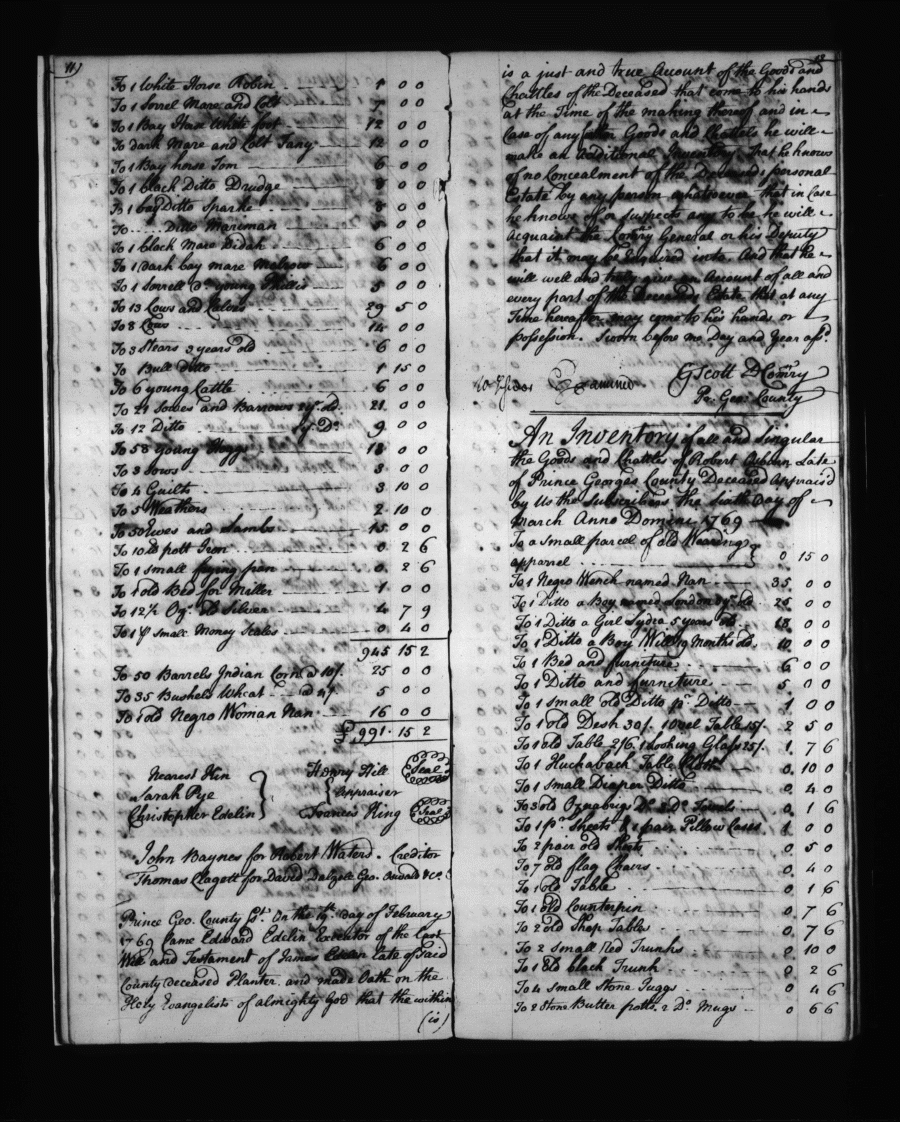 To 1 White Horse Robin 0 0
To 1 Sorrel Mare and Colt 7 0 0
To 1 Bay White foot 12 0 0
To dark Mare and Colt 12 0 0
To 1 Bay horse Tom 6 0 0
To 1 black Ditto Drudge 0 0
To 1 bay Ditto Sparke 0 0
To Ditto Mariman 0 0
To 1 black Mare 6 0 0
To 1 Dark bay mare 6 0 0
To 1 Sorrell Do. young Phillis 5 0 0
To 13 Cows and Calves 29 5 0
To 8 Cows 14 0 0
To 3 Stears 3 years old 6 0 0
To Bull Ditto 1 15 0
To 6 young Cattle 6 0 0
To 21 Sowes and Barrows old 21. 0 0
To 12 Ditto Do. 9 0 0
To 58 young Hoggs 18 0 0
To 3 Sows 3 0 0
To 4 Guilts 3 10 0
To 5 Weathers 2 10 0
To 50 Ewes and Lambs 15 0 0
To 10 lb pott Iron 0 2 6
To 1 small frying pan 0 2 6
To 1 old Bed for Miller 1 0 0
To 12½ Oz. Silver 4 7 9
To 1 pr small Money Scales 0 4 0
945 15 2
To 50 Barrels Indian Corn @ 10/. 25 0 0
To 35 Bushels Wheat 5 0 0
To 1 old Negro Woman Nan 16 0 0
£ 991. 15 2
Nearest Kin
Sarah Pye
Christopher Edelin
Henry Hill Seal
Appraiser
Francis King Seal
John Baynes for Robert Waters. Creditor
Thomas Clagett for David Dalzell Geo. & Co.
Prince Geo. County Sct. On the day of February
1769 Came Edward Edelin Executor of the Last
Will and Testament of James Edelen Late of Said
County deceased Planter. and made Oath on the
Holy Evangelists of almighty God that the within
(is)
is a just and true Account of the Goods and
Chattles of the Deceased that come to his hands
at the Time of the making thereof and in
Case of any Goods and Chattels he will
make an additional Inventory, that he knows
of no Concealment of the Deceaseds personal
Estate by any person whatsoever that in Case
he knows of or suspects any to be he will
acquaint the Comry General or his Deputy
that it may be enquired into. And that he
will well and truly give an Account of all and
every part of the Deceaseds Estate that at any
Time hereafter may come to his hands or
possession. Sworn before me Day and Year afsd.
Examined
G Scott D Comry
Pr. Geo. County
An Inventory of all and Singular
the Goods and Chattles of Robert Late
of Prince Georges County Deceased Appraisd
by Us the Subscribers the Sixth day of
March Anno Domini 1769
To a small parcel of old Wearing
apparel 0 15 0
To 1 Negro Wench named Nan 35 0 0
To 1 Ditto a Boy named London old 25 0 0
To 1 Ditto a Girl Lydia 5 years old 18 0 0
To 1 Ditto a Boy Will 19 Months old. 10 0 0
To 1 Bed and furniture 6 0 0
To 1 Ditto and furniture 5 0 0
To 1 Small old Ditto pr. Ditto 1 0 0
To 1 old Desk 30/. 1 Oval Table 15/. 2 5 0
To 1 old Table 2/6. 1 Looking Glass 25/. 1. 7 6
To 1 Huckaback Table Cloth 0. 10 0
To 1 small Diaper Ditto 0 4 0
To 3 old Oznabrigs Do. 2 Do. Towels 0. 1 6
To 1 pr. Sheets & 1 pair Pillow Cases 1 0 0
To 2 pair old Sheets 0 5 0
To 7 old flag Chairs 0. 4 0
To 1 old Table 0 1 6
To 1 old Counterpin 0. 7 6
To 2 old Shop Tables 0. 7 6
To 2 small Red Trunks 0 10 0
To 1 old black Trunk 0 2 6
To 4 small Stone Juggs 0 4 6
To 2 Stone Butter potts. 2 Do. Mugs 0 6 6